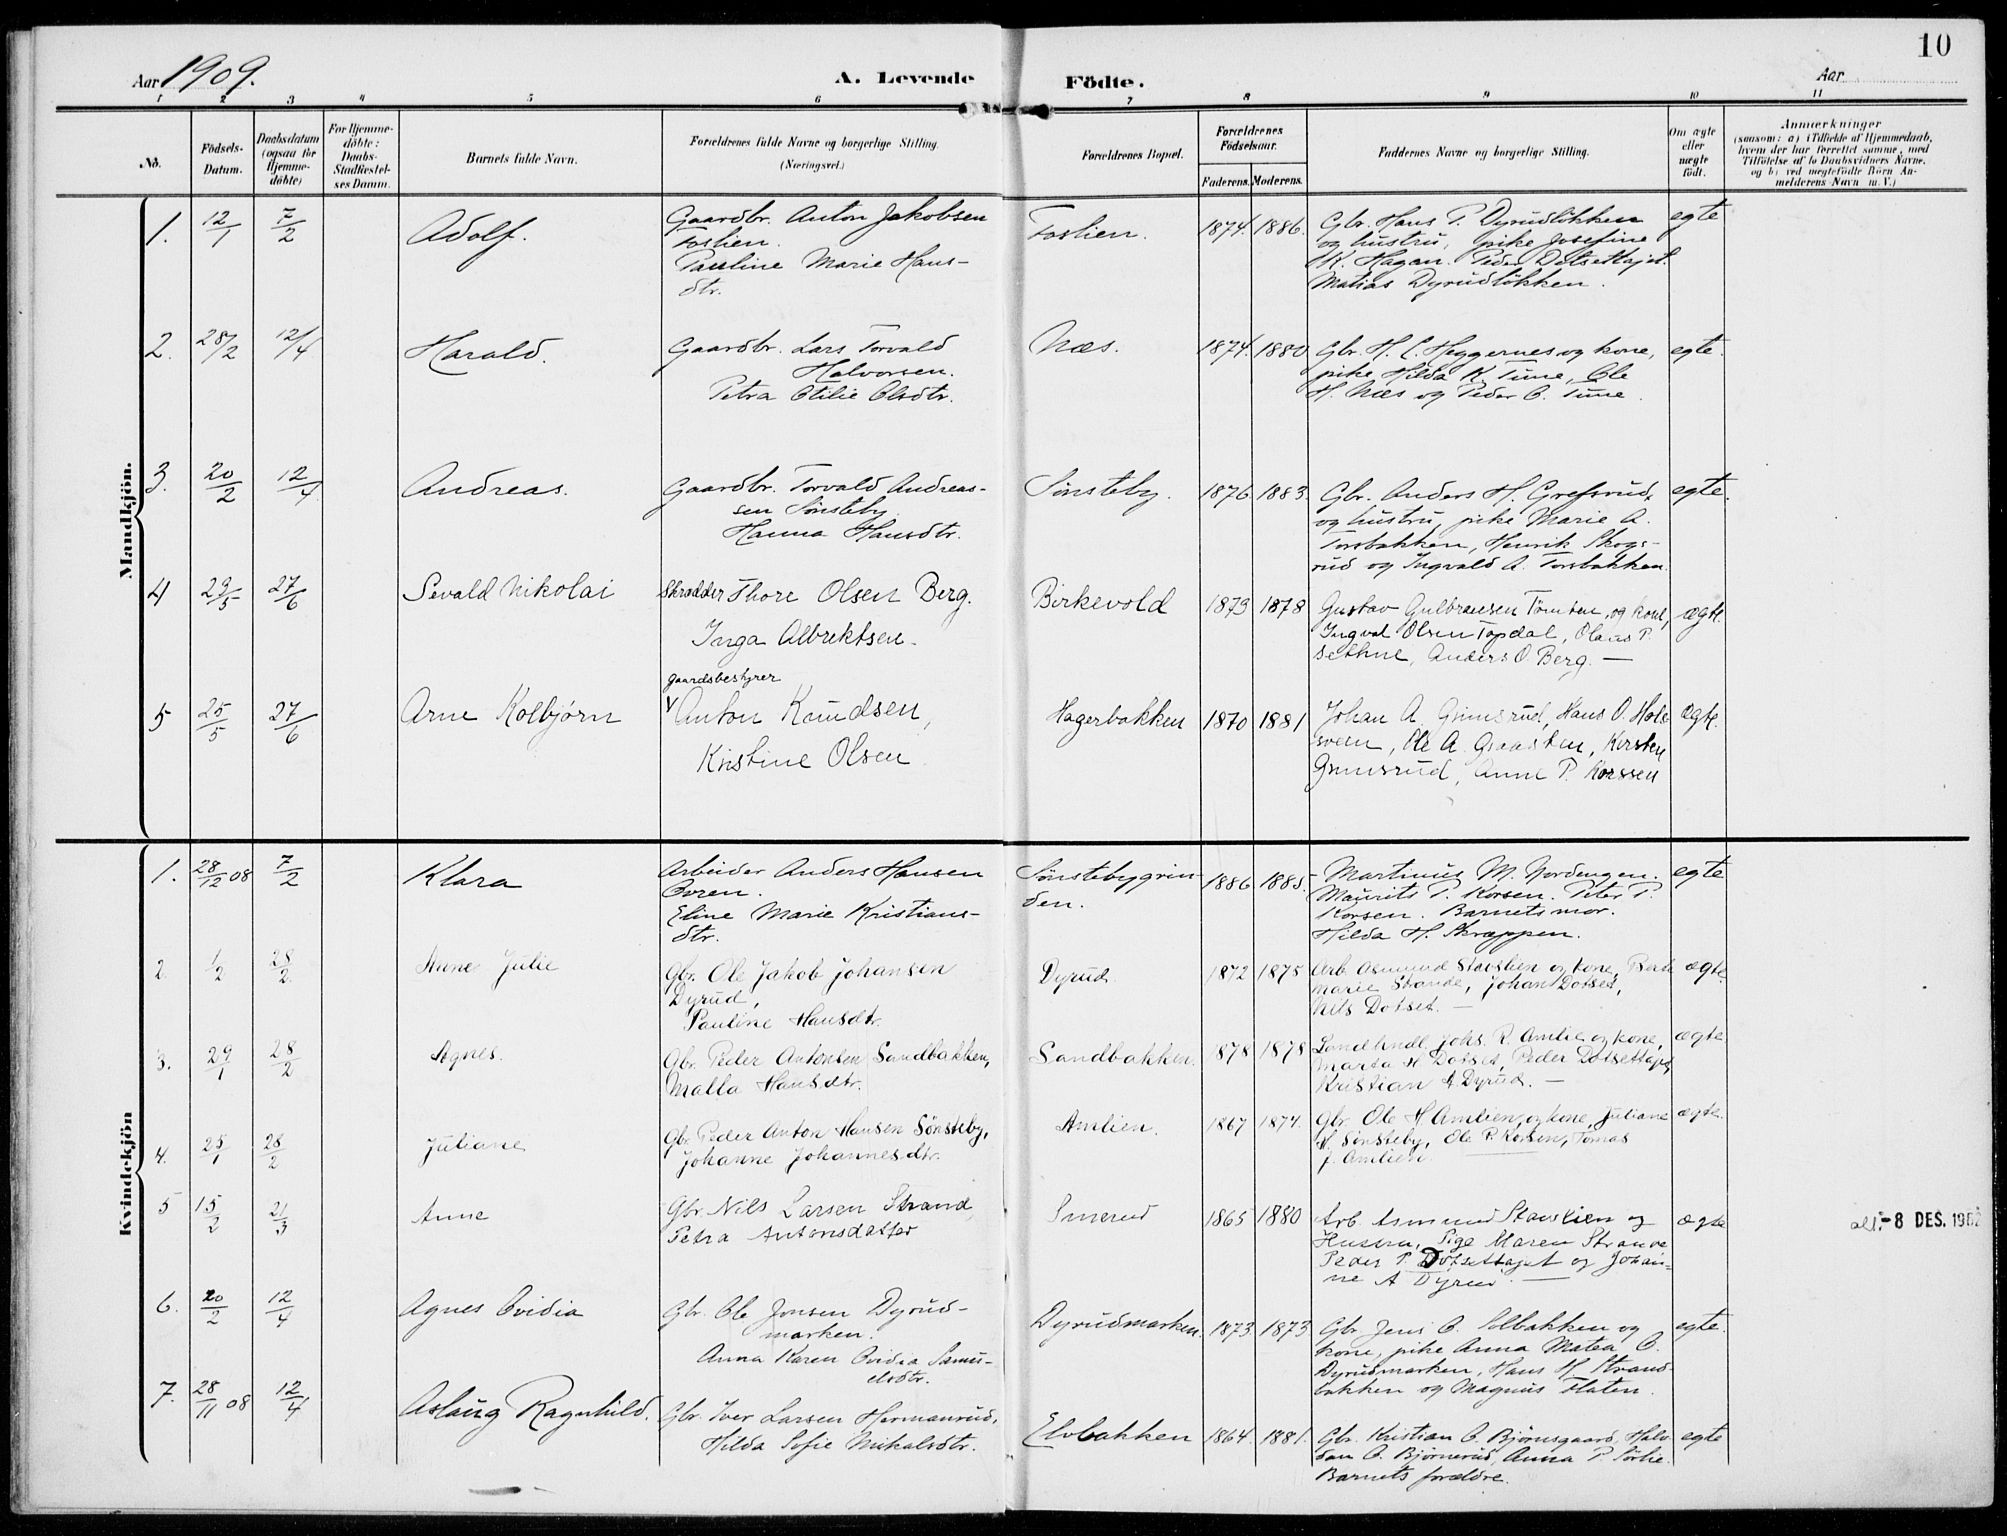 10
Aar 1909.
A. Levende
Födte.
Aar
1 2 3 4 5 6 7 8 9 10 11
No.
Födsels-
Datum.
Daabsdatum
(ogsaa for
Hjemme-
döbte)
For Hjemme-
döbte:
Daabs-
Stadfæstel-
ses Datum.
Barnets fulde Navn.
Forældrenes fulde Navne og borgerlige Stilling.
(Næringsvei.)
Forældrenes Bopæl.
Forældrenes
Födselsaar.
Faderens. Moderens.
Faddernes Navne og borgerlige Stilling.
Om ægte
eller
uægte
födt.
Anmærkninger
(saasom: a) i Tilfælde af Hjemmedaab,
hvem der har forrettet samme, med
Tilföielse af to Daabsvidners Navne,
og b) ved uegtefödte Börn An-
melderens Navn m. V.)
Mandkjön.
1. 12/1 7/2 Adolf.
Gaardbr. Anton Jakobsen
Foslien.
Pauline Marie Hans-
dtr.
Foslien. 1874. 1886.
Gbr. Hans P. Dyrudløkken
og hustru, pike Josefine
K. Hagan. Peder Dotsettajet.
Matias Dyrudløkken.
egte
2. 28/2 12/4 Harald.
Gaardbr. Lars Torvald
Halvorsen.
Petra Otilie Olsdtr.
Næs. 1874. 1880
Gbr. H. C. Heggernes og kone,
pike Hilda K. Tune, Ole
H. Næs og Peder O. Tune.
egte.
3. 20/2 12/4 Andreas.
Gaardbr. Torvald Andreas-
sen Sønsteby.
Hanna Hansdtr.
Sønsteby. 1876. 1883.
Gbr. Anders H. Grefsrud,
og hustru, pike Marie A.
Torsbakken, Henrik Skogs-
rud og Ingvald A. Torsbakken.
egte.
4 29/5 27/6 Sevald Nikolai
Skrædder Thore Olsen Berg.
Inga Albrektsen.
Birkevold 1873 1878
Gustav Gulbransen Tomten, og kone,
Ingval Olsen Topdal, Olaus P.
Sethne, Anders O. Berg. —
ægte.
5 25/5 27/6 Arne Kolbjørn
gaardsbestyrer
Anton Knudsen,
Kristine Olsen
Hagerbakken 1870 1881
Johan A. Grimsrud, Hans O. Hole
svern, Ole A. Graasten, Kersten
Grimsrud, Anne P. Korssen
Ægte.
Kvindekjön
1. 28/12 08 7/2 Klara
Arbeider Anders Hansen
Ovren.
Eline Marie Kristians-
dtr.
Sønstebygrin
den. 1886 1885.
Martinus M. Nordengen.
Maurits P. Korsen. Peter P.
Korsen. Barnets mor.
Hilda H. Skrappen.
egte
2 1/2 28/2. Anne Julie
Gbr. Ole Jakob Johansen
Dyrud,
Pauline Hansdtr.
Dyrud 1872 1875
Arb. Asmund Stavslien og kone, Berte
Marie Strande, Johan Dotset,
Nils Dotset. —
ægte.
3. 29/1 28/2 Agnes.
Gbr. Peder Antonsen Sandbakken,
Malla Hansdtr.
Sandbakken. 1878 1878
Landhndl. Johs. R. Amlie og kone,
Marta H Dotset, Peder Dotsettajet,
Kristian A. Dyrud. —
ægte
4. 25/1 28/2 Juliane
Gbr. Peder Anton Hansen Sønsteby,
Johanne Johannesdtr.
Amlien. 1867 1874.
Gbr. Ole H Amlien, og kone, Juliane
H. Sønsteby, Ole P. Korsen, Tomas
J. Amlien.
ægte.
5 15/2 21/3 Anne
Gbr. Nils Larsen Strand,
Petra Antonsdatter
Smerud 1865 1880
Arb. Asmund Stavslien og
Hustru, Pige Maren Strande
Peder P. Dotsettajet og Johan-
ne A Dyrud. —
ægte
-8 DES. 196
6. 20/2 12/4 Agnes Ovidia
Gbr. Ole Jonsen Dyrud-
marken.
Anna Karen Ovidia Samu-
elsdtr.
Dyrudmarken. 1873 1873
Gbr. Jens O. Solbakken og
kone, pike Anna Matea O.
Dyrudmarken, Hans H. Strand-
bakken og Magnus Flaten.
egte.
7. 28/11 08 12/4 Aslaug Ragnhild.
Gbr. Iver Larsen Hermanrud,
Hilda Sofie Mikalsdtr.
Elvbakken 1864. 1881.
Gbr. Kristian O. Bjørnsgaard, Halv-
dan O. Bjørnerud, Anna P. Sørlie.
Barnets forældre.
egte